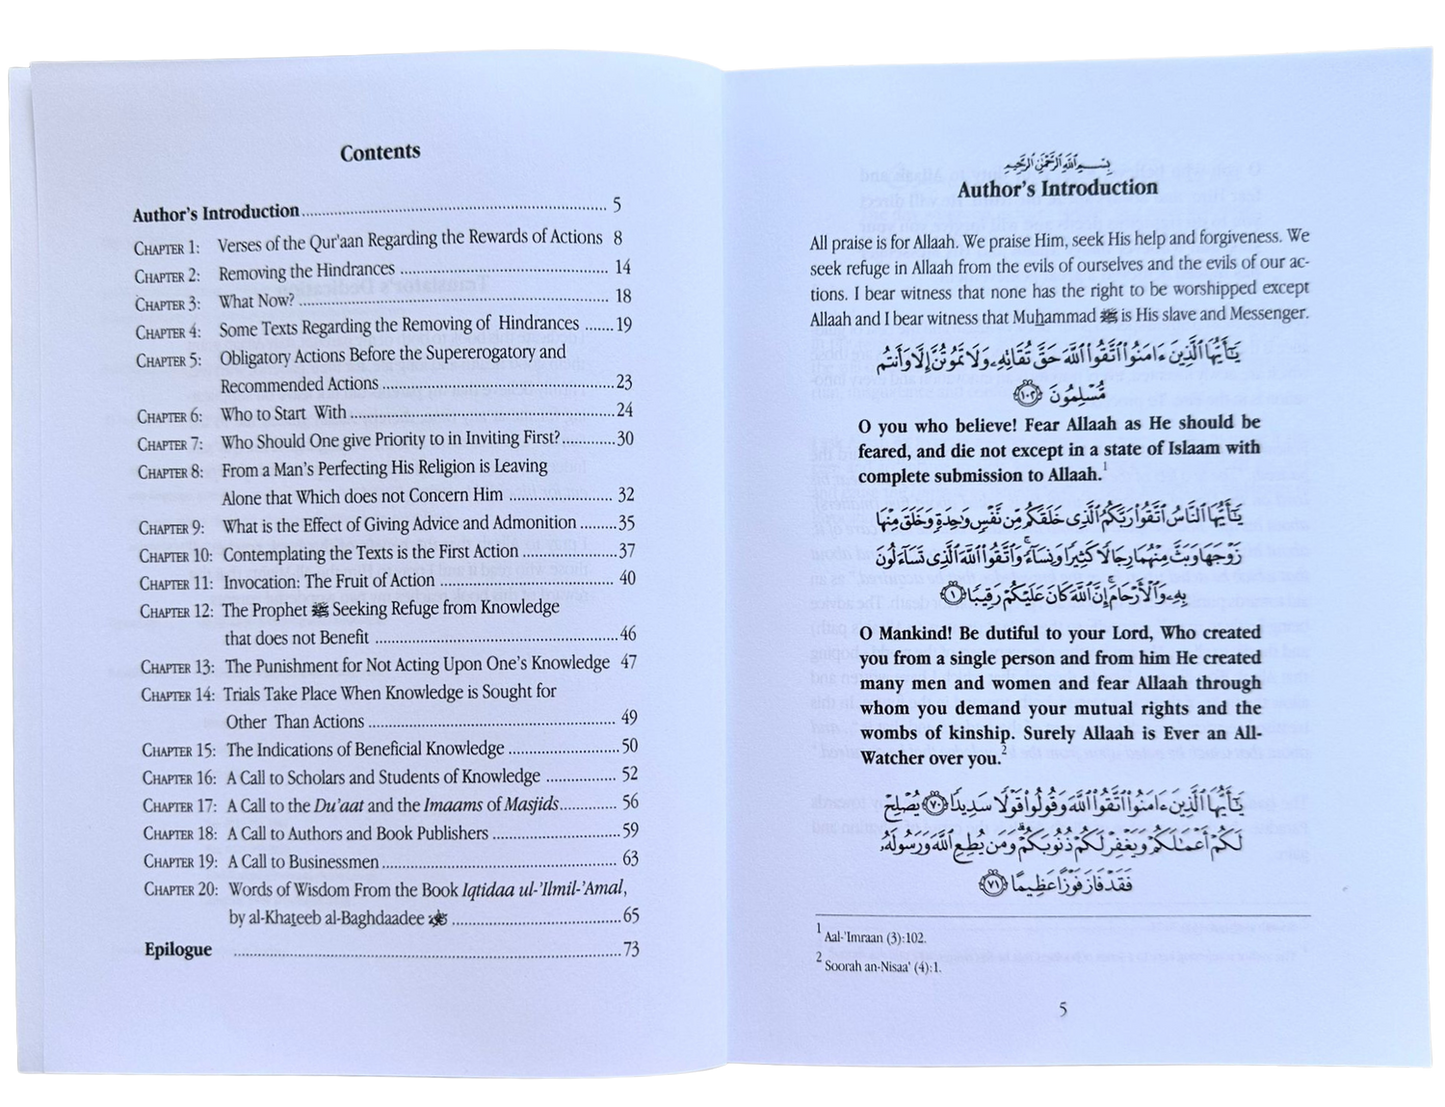 Contents
Author's Introduction 5
Chapter 1: Verses of the Qur'aan Regarding the Rewards of Actions 8
Chapter 2: Removing the Hindrances 14
Chapter 3: What Now? 18
Chapter 4: Some Texts Regarding the Removing of Hindrances 19
Chapter 5: Obligatory Actions Before the Supererogatory and
Recommended Actions 23
Chapter 6: Who to Start With 24
Chapter 7: Who Should One give Priority to in Inviting First? 30
Chapter 8: From a Man's Perfecting His Religion is Leaving
Alone that Which does not Concern Him 32
Chapter 9: What is the Effect of Giving Advice and Admonition 35
Chapter 10: Contemplating the Texts is the First Action 37
Chapter 11: Invocation: The Fruit of Action 40
Chapter 12: The Prophet ﷺ Seeking Refuge from Knowledge
that does not Benefit 46
Chapter 13: The Punishment for Not Acting Upon One's Knowledge 47
Chapter 14: Trials Take Place When Knowledge is Sought for
Other Than Actions 49
Chapter 15: The Indications of Beneficial Knowledge 50
Chapter 16: A Call to Scholars and Students of Knowledge 52
Chapter 17: A Call to the Du'aat and the Imaams of Masjids 56
Chapter 18: A Call to Authors and Book Publishers 59
Chapter 19: A Call to Businessmen 63
Chapter 20: Words of Wisdom From the Book Iqtidaa ul-'Ilmil-'Amal,
by al-Khateeb al-Baghdaadee 65
Epilogue 73
بِسْمِ ٱللَّهِ ٱلرَّحْمَٰنِ ٱلرَّحِيمِ
Author's Introduction
All praise is for Allaah. We praise Him, seek His help and forgiveness. We
seek refuge in Allaah from the evils of ourselves and the evils of our ac-
tions. I bear witness that none has the right to be worshipped except
Allaah and I bear witness that Muhammad ﷺ is His slave and Messenger.
يَٰٓأَيُّهَا ٱلَّذِينَ ءَامَنُوا۟ ٱتَّقُوا۟ ٱللَّهَ حَقَّ تُقَاتِهِۦ وَلَا تَمُوتُنَّ إِلَّا وَأَنتُم
مُّسْلِمُونَ ١٠٢
O you who believe! Fear Allaah as He should be
feared, and die not except in a state of Islaam with
complete submission to Allaah.1
يَٰٓأَيُّهَا ٱلنَّاسُ ٱتَّقُوا۟ رَبَّكُمُ ٱلَّذِى خَلَقَكُم مِّن نَّفْسٍ وَٰحِدَةٍ وَخَلَقَ مِنْهَا
زَوْجَهَا وَبَثَّ مِنْهُمَا رِجَالًا كَثِيرًا وَنِسَآءً ۚ وَٱتَّقُوا۟ ٱللَّهَ ٱلَّذِى تَسَآءَلُونَ
بِهِۦ وَٱلْأَرْحَامَ ۚ إِنَّ ٱللَّهَ كَانَ عَلَيْكُمْ رَقِيبًا ١
O Mankind! Be dutiful to your Lord, Who created
you from a single person and from him He created
many men and women and fear Allaah through
whom you demand your mutual rights and the
wombs of kinship. Surely Allaah is Ever an All-
Watcher over you.2
يَٰٓأَيُّهَا ٱلَّذِينَ ءَامَنُوا۟ ٱتَّقُوا۟ ٱللَّهَ وَقُولُوا۟ قَوْلًا سَدِيدًا ٧٠ يُصْلِحْ
لَكُمْ أَعْمَٰلَكُمْ وَيَغْفِرْ لَكُمْ ذُنُوبَكُمْ ۗ وَمَن يُطِعِ ٱللَّهَ وَرَسُولَهُۥ
فَقَدْ فَازَ فَوْزًا عَظِيمًا ٧١
1 Aal-'Imraan (3):102.
2 Soorah an-Nisaa' (4):1.
5